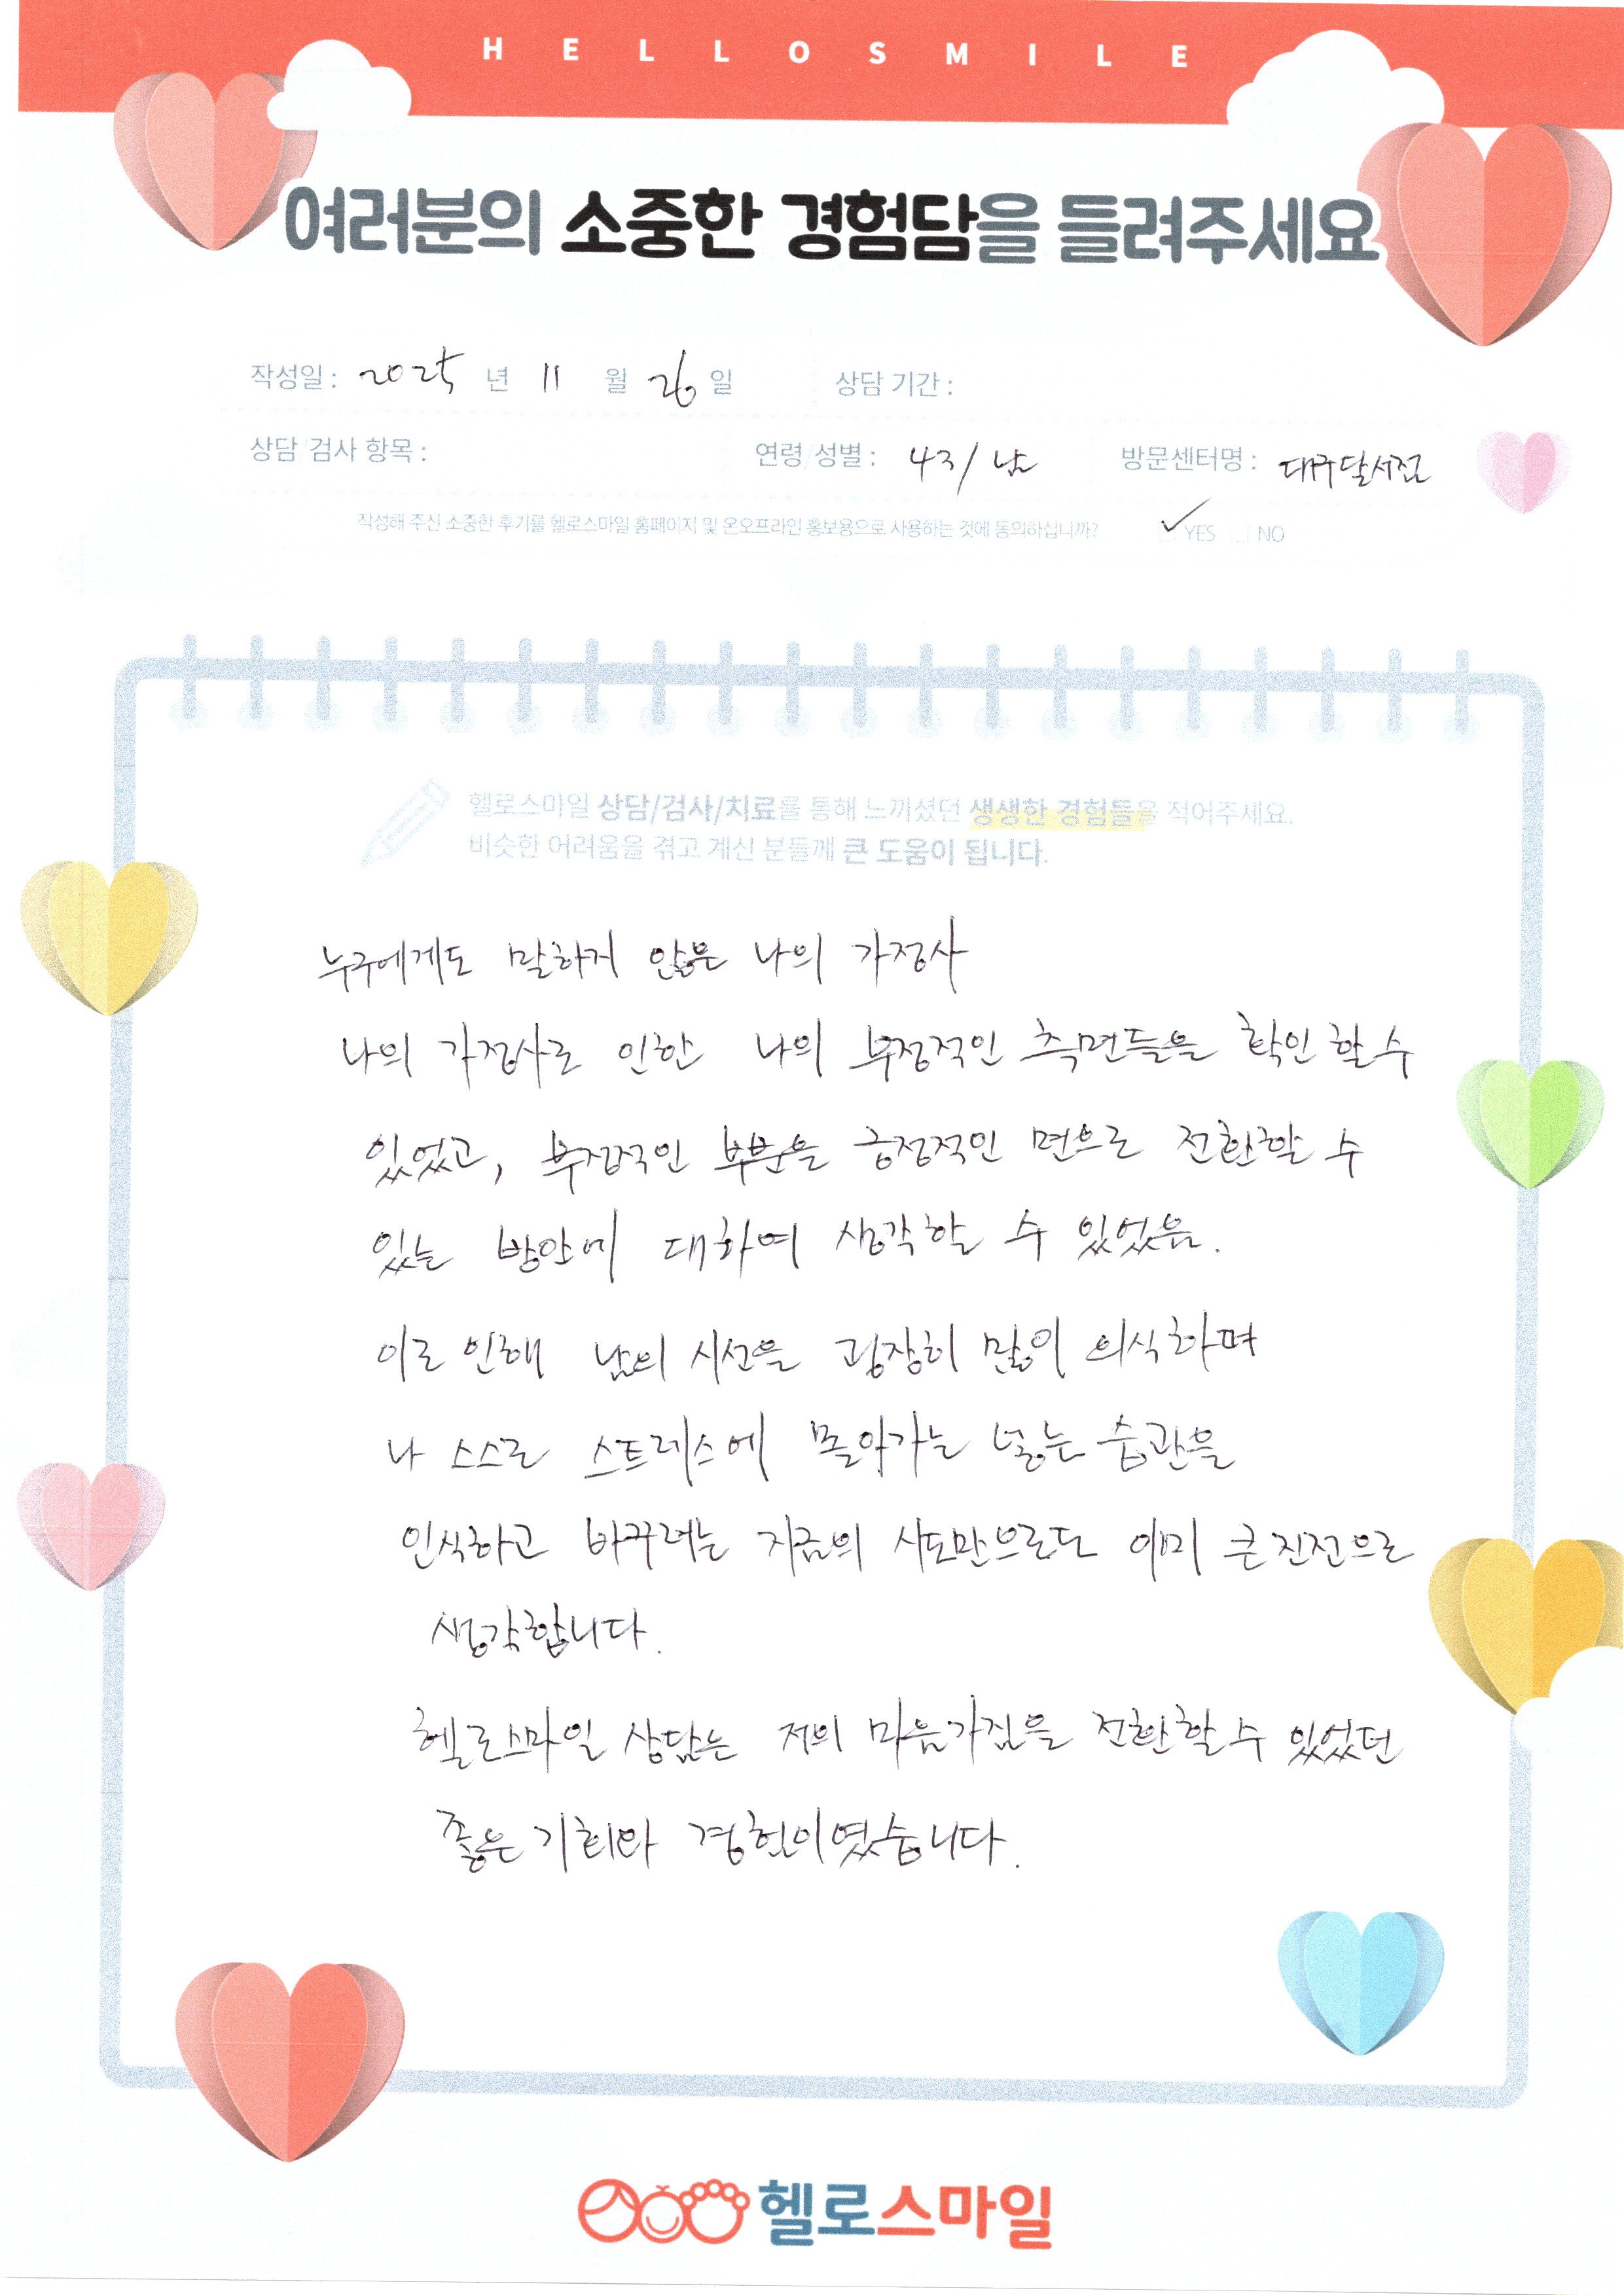 HELLOSMILE
여러분의 소중한 경험담을 들려주세요
작성일 : 2025 년 11 월 26 일 상담 기간 :
상담 검사 항목 : 연령 성별 : 43/남 방문센터명 : 대구달서점
작성해 주신 소중한 후기를 헬로스마일 홈페이지 및 온오프라인 홍보용으로 사용하는 것에 동의하십니까? ✓ YES NO
헬로스마일 상담/검사/치료를 통해 느끼셨던 생생한 경험들을 적어주세요.
비슷한 어려움을 겪고 계신 분들께 큰 도움이 됩니다.
누구에게도 말하지 않은 나의 가정사
나의 가정사로 인한 나의 부정적인 측면들을 확인 할 수
있었고, 부정적인 부분을 긍정적인 면으로 전환할 수
있는 방안에 대하여 생각할 수 있었음.
이로 인해 남의 시선을 굉장히 많이 의식하며
나 스스로 스트레스에 몰아가는 넣는 습관을
인식하고 바꾸려는 지금의 시도만으로도 이미 큰 진전으로
생각합니다.
헬로스마일 상담은 저의 마음가짐을 전환할 수 있었던
좋은 기회와 경험이였습니다.
헬로스마일